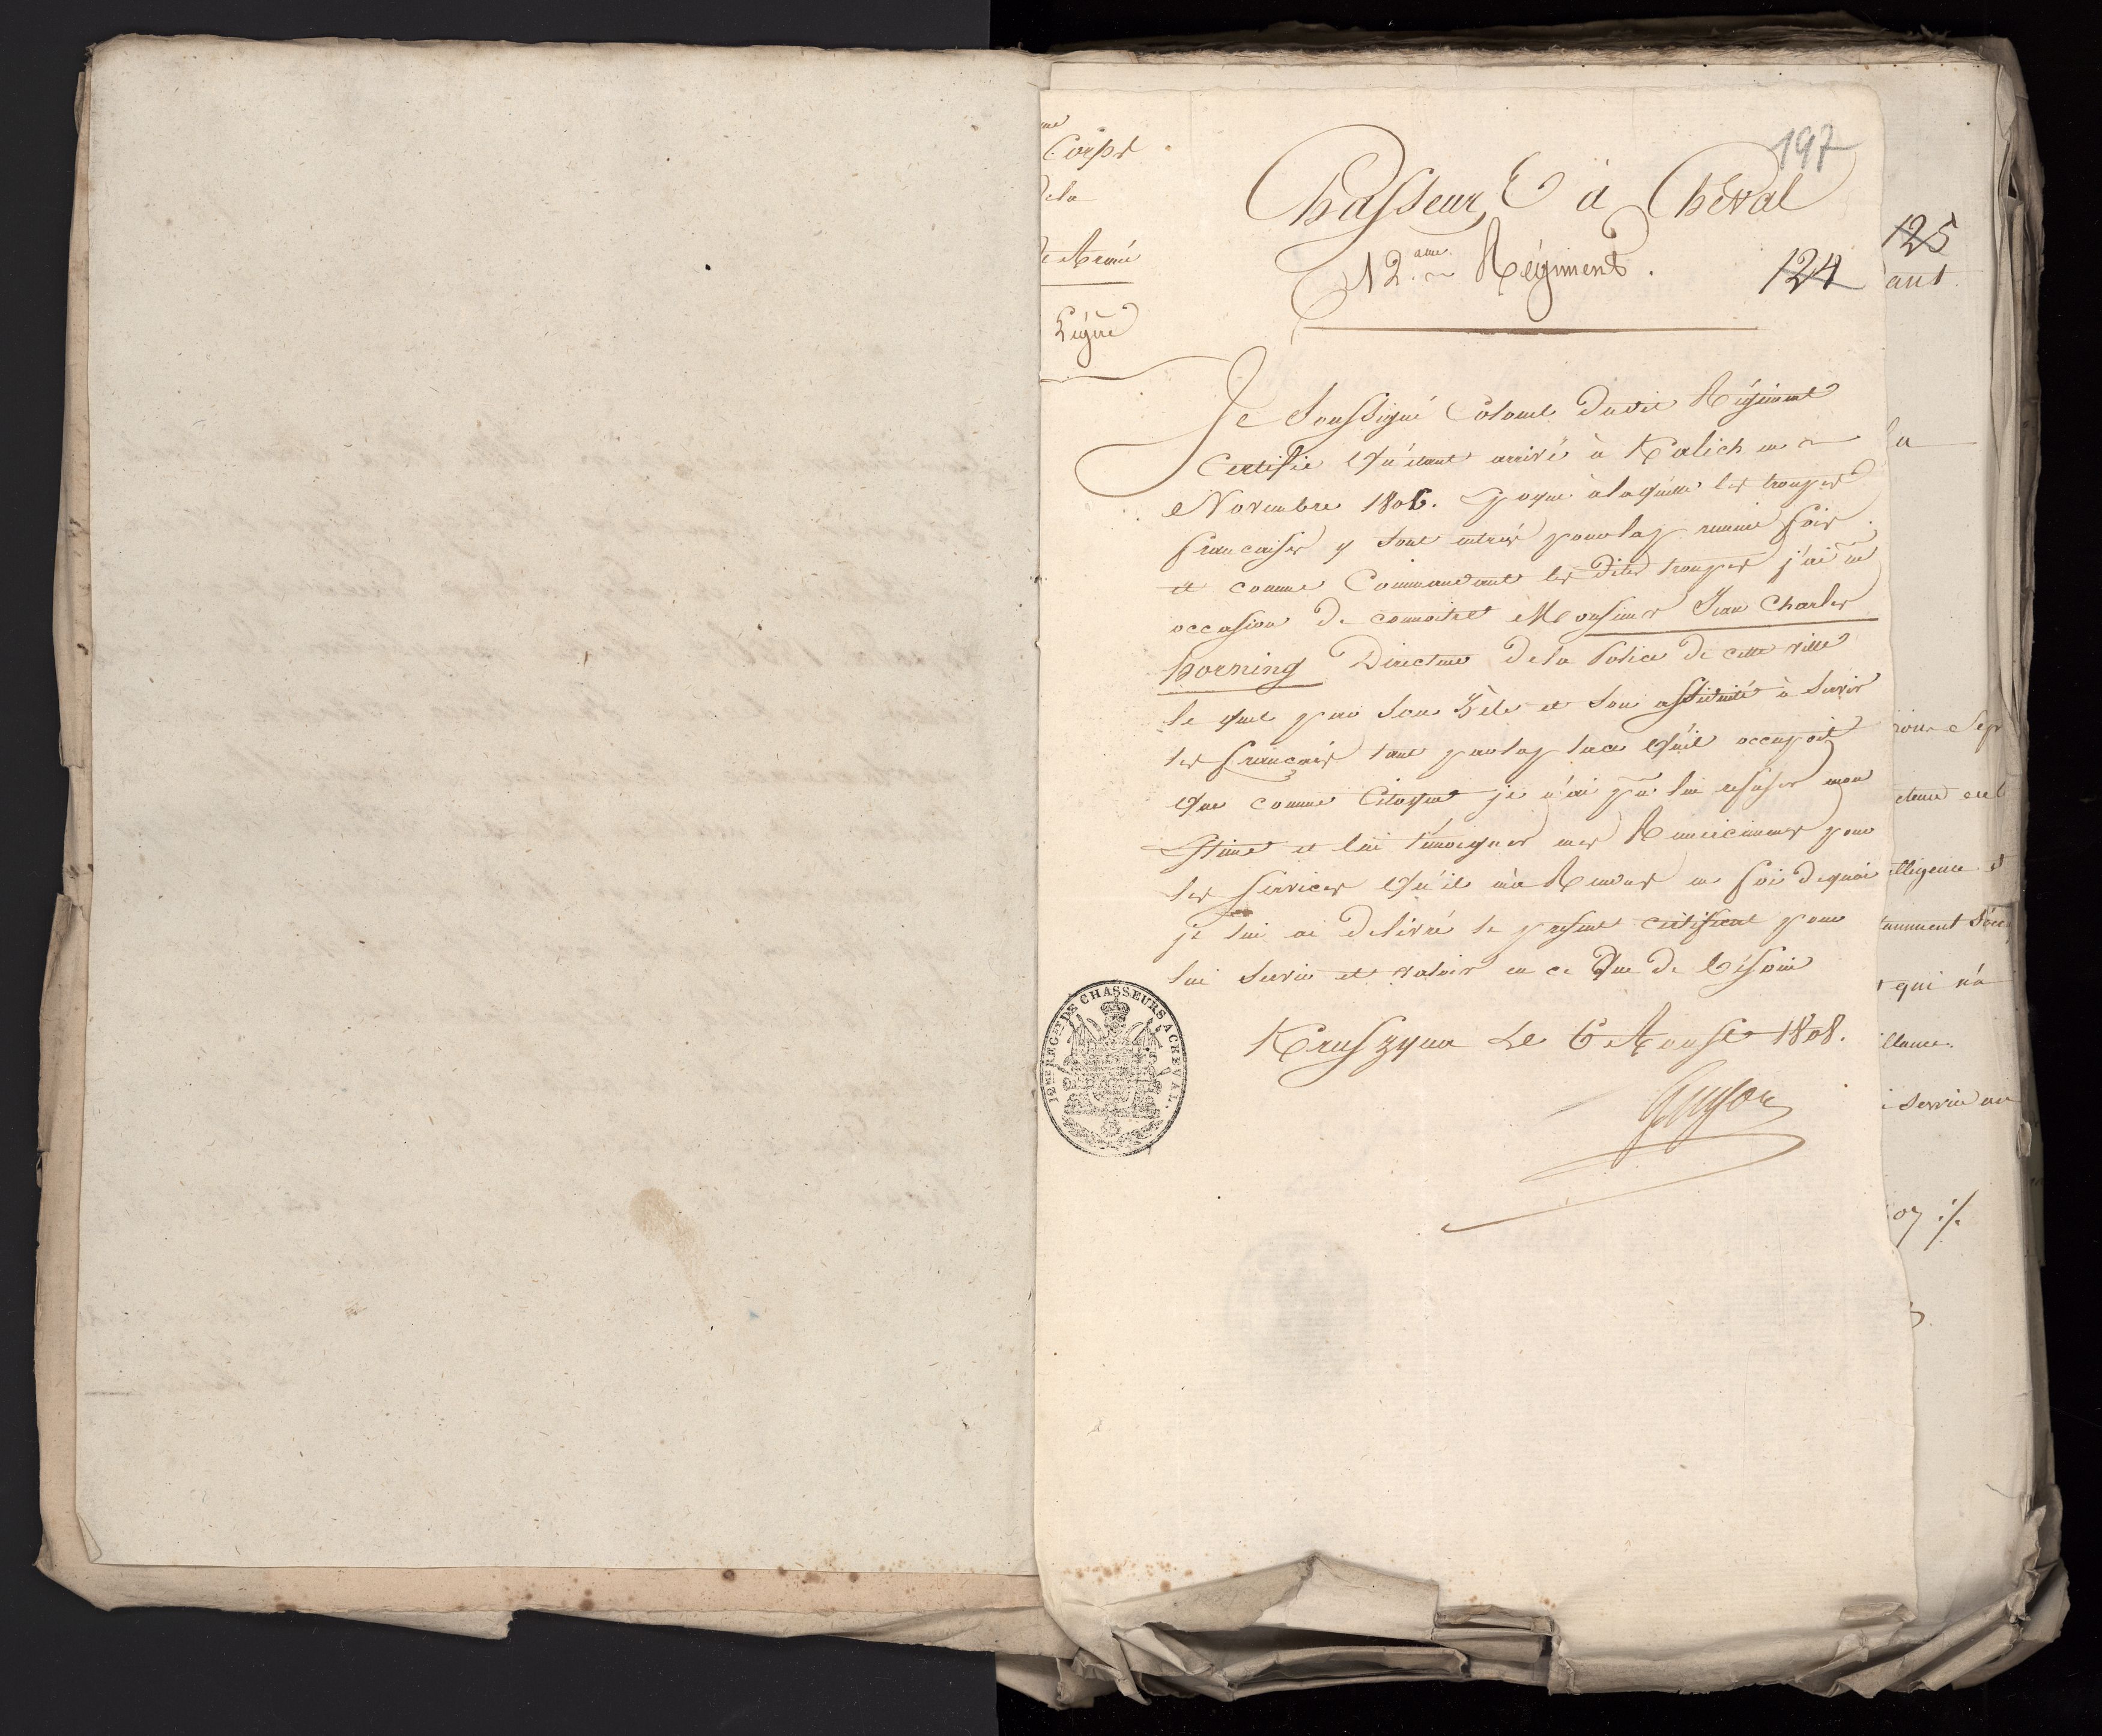 197
me
Corps
de la
de Armée
Ligne
Chasseurs à Cheval
12.eme Régiment.
124
125
ant
Je Soussigné Colonel dudit Régiment
Certifie qu'étant arrivé à Kalich en
Novembre 1806. Epoque à laquelle les troupes
françaises y sont entrés pour la premiere fois
et comme Commandant les dites troupes j'ai eu
occasion de connoitre Monsieur Jean Charles
horning Directeur de la Police de cette ville
le quel par son Zèle et son assiduité à servir
les français tant par la place qu'il occupoit
que comme Citoyen je n'ai pu lui refuser mon
Estime et lui temoigner mes Remerciemens pour
les services qu'il m'a Rendus en foi de quoi
je lui ai delivré le present certificat pour
lui servir et valoir en ce que de besoin
Kruszyna Le 6 Aoust 1808.
Guyon
12ME REGET DE CHASSEURS A CHEVAL.
la
tamment
qui n'a
illance.
servir
07 ./.